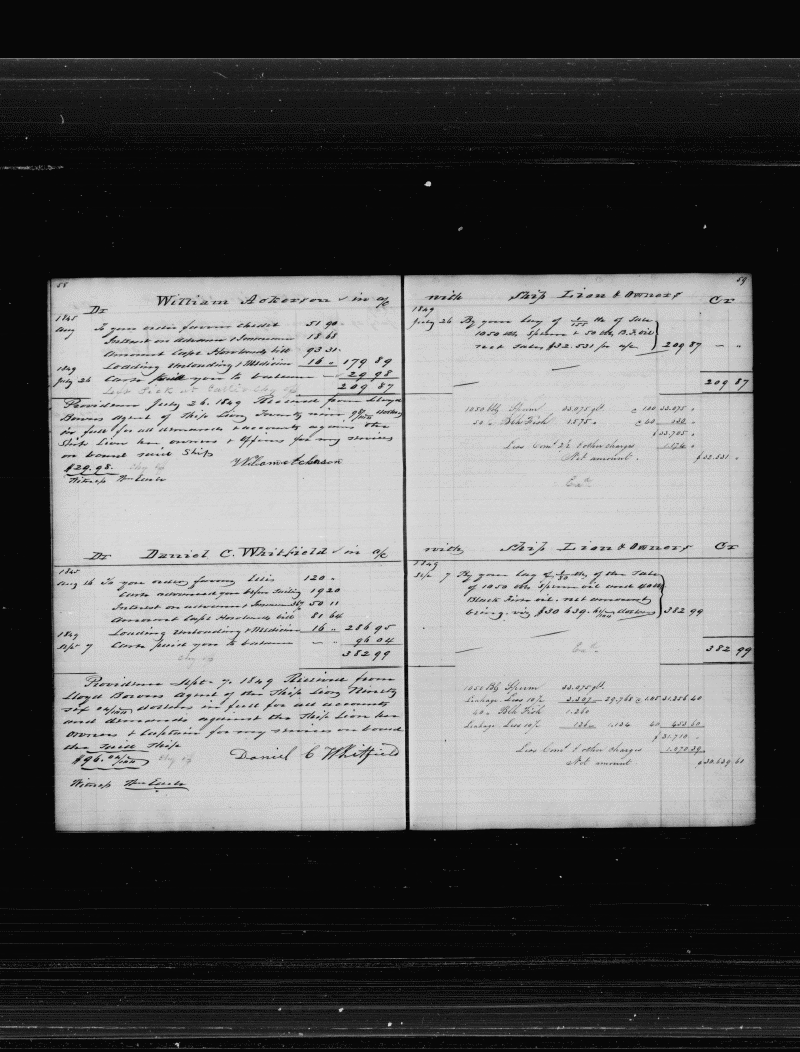 58
Dr William Ackerson in a/c
1845
Aug To your order favour Credit 51 90
Interest on advance & Insurance 18 68
Amount Capt Howlands bill 93 31
1849 Loading Unloading & Medicine 16 " 179 89
July 26 Cash paid you to balance 29 98
209 87
Providence July 26. 1849 Received from Lloyd
Bowers Agent of Ship Lion Twenty nine 98/100 dollars
in full for all demands & accounts against the
Ship Lion her owners & officers for my services
on board said Ship
$29.98.
William Ackerson
Witness
Dr Daniel C. Whitfield in a/c
1845
Aug 16 To your order favour 120 "
Cash advanced you before Sailing 19 20
Interest on advance & Insurance 50 11
Amount Capt Howlands bill 81 64
1849 Loading Unloading & Medicine 16 " 286 95
Sept 7 Cash paid you to balance 96 04
382 99
Providence Sept. 7. 1849 Received from
Lloyd Bowers Agent of the Ship Lion Ninety
six 04/100 dollars in full for all accounts
and demands against the Ship Lion her
owners & Captain for my services on board
the said Ship
$96. 04/100
Daniel C Whitfield
Witness
59
with Ship Lion & Owners Cr
1849
July 26 By your lay of of Sale
1050 bbls Sperm & 50 bbls B. F. Oil
net Sales $32.531 pr a/c 209 87
209 87
1050 bbls Sperm 33.075 glls @ 100 33.075 "
50 " Blk Fish 1575 " @ 40
$33.705 "
Less Comn 2½ & other charges
Net amount. $32.531 "
with Ship Lion & Owners Cr
1849
Sept 7 By your lay of the Sales
of 1050 bbls Sperm oil and 40 bbls
Black Fish oil. net amount
being $30.639. 61/100 dollars 382 99
382 99
1050 Bbl Sperm 33.075 glls
Leakage Less 10/c 3.307 29.768 @ 1.05 31.256.40
40 " Blk Fish 1.260
Leakage Less 10/c 126 1.134 40 453.60
$31.710 "
Less Comn & other charges 1.070.39
Net amount $30.639.61